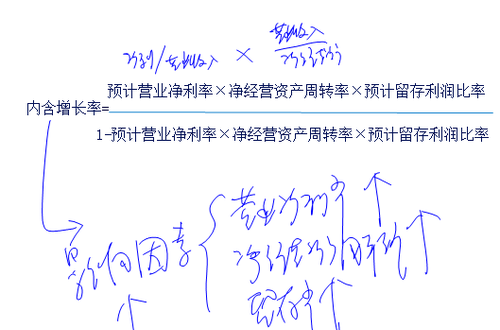 净利/营业收入 × 营业收入/净经营资产
预计营业净利率×净经营资产周转率×预计留存利润比率
内含增长率=
1-预计营业净利率×净经营资产周转率×预计留存利润比率
营业净利率↑
影响因素 净经营资产周转率↑
↑ 留存率↑